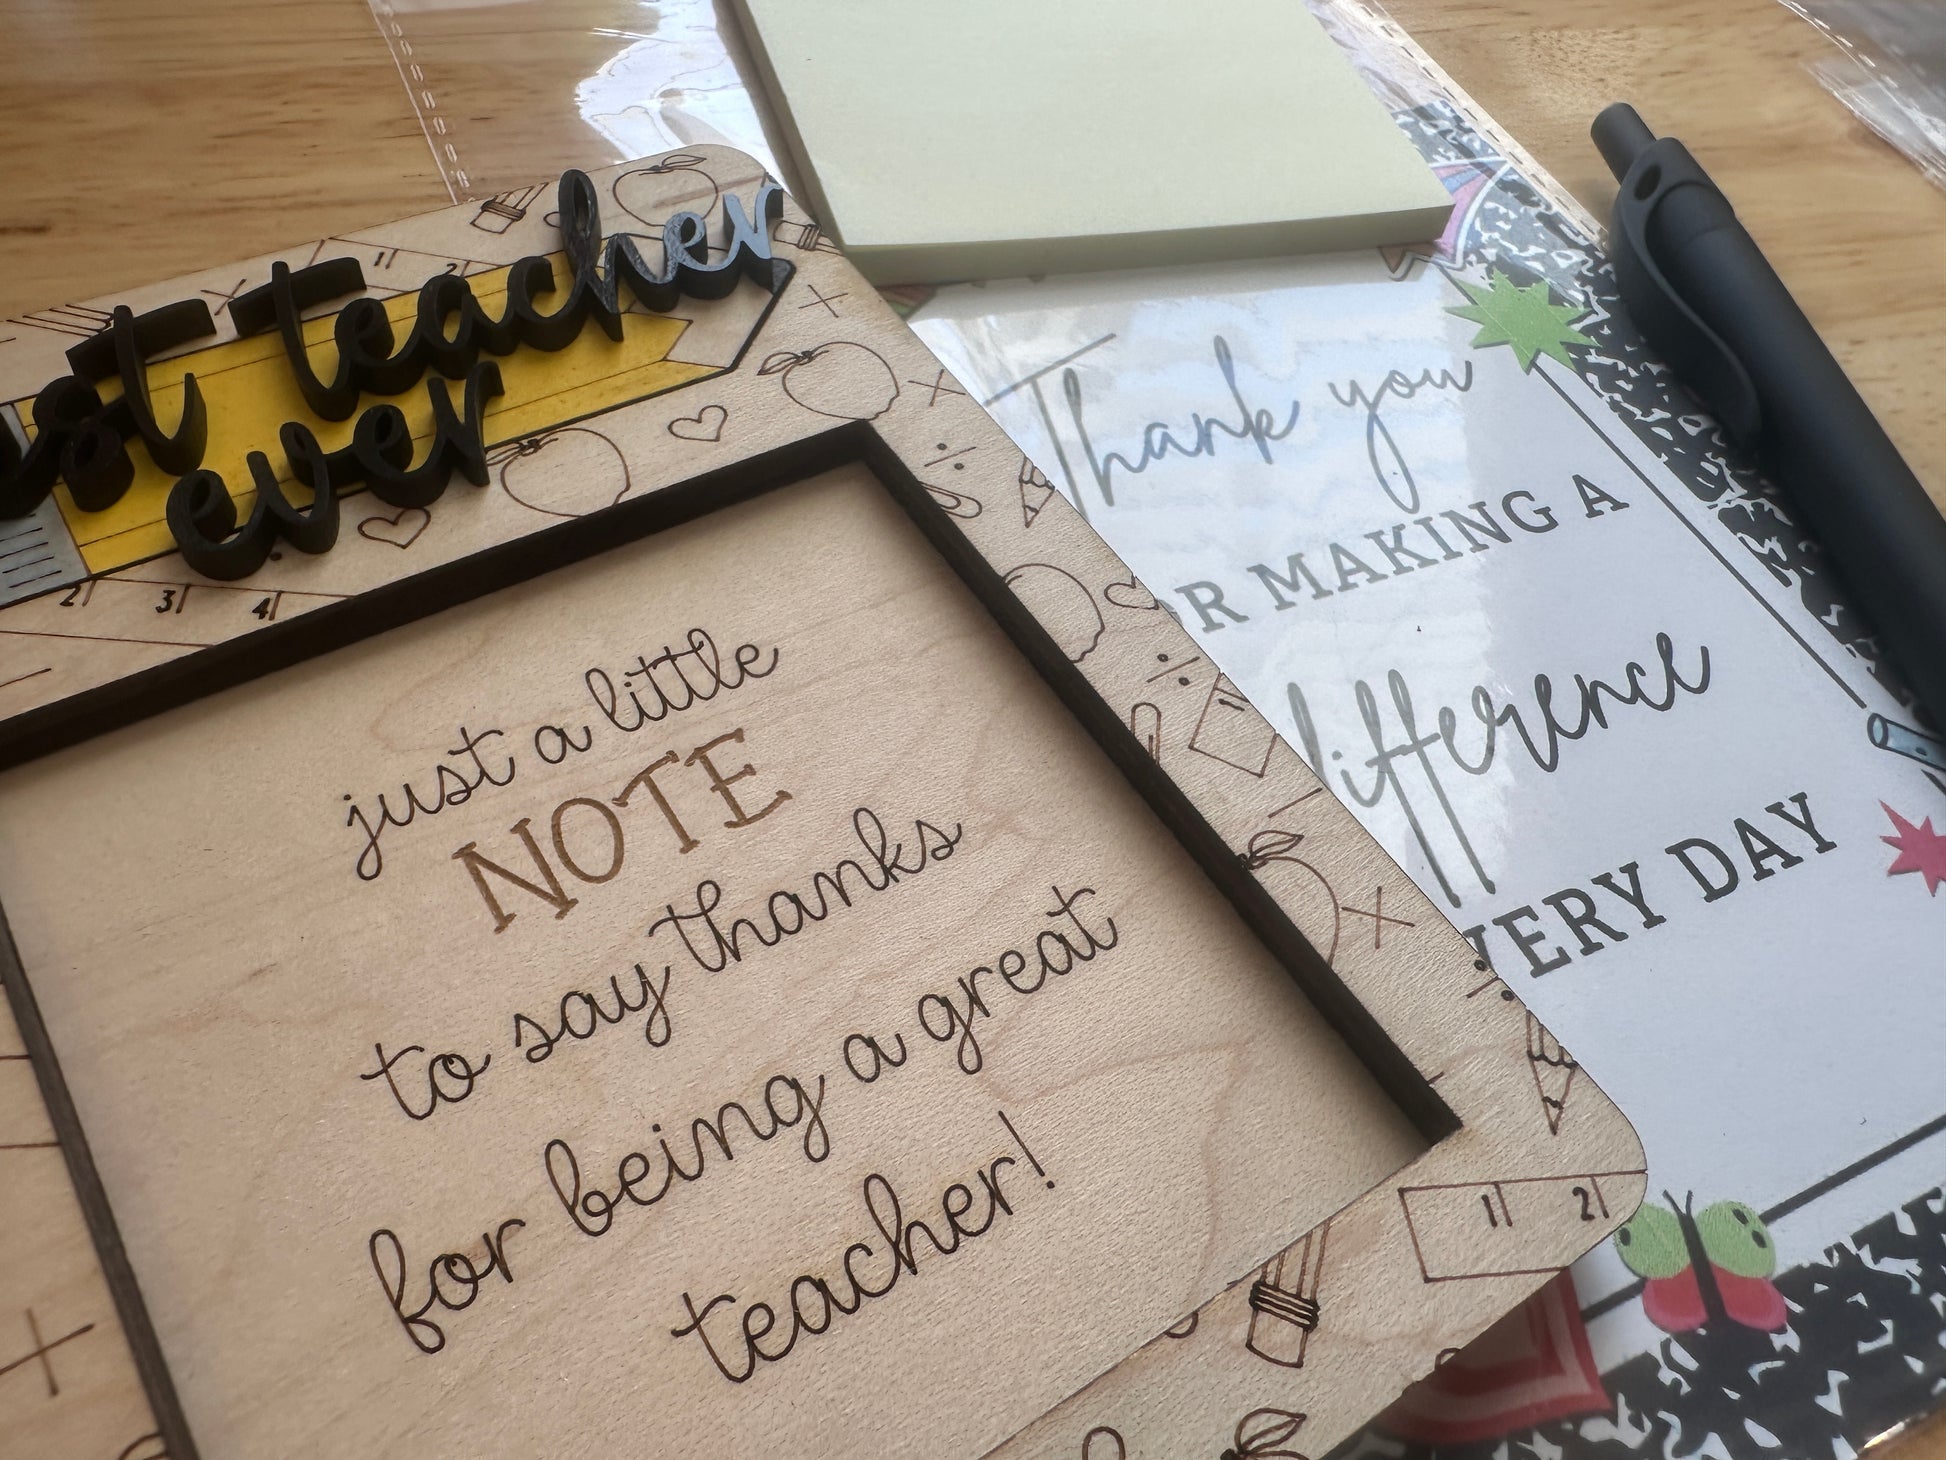 teacher
ever
1 2
2 3 4
just a little
NOTE
to say thanks
for being a great
teacher!
1 2
Thank you
MAKING A
difference
DAY